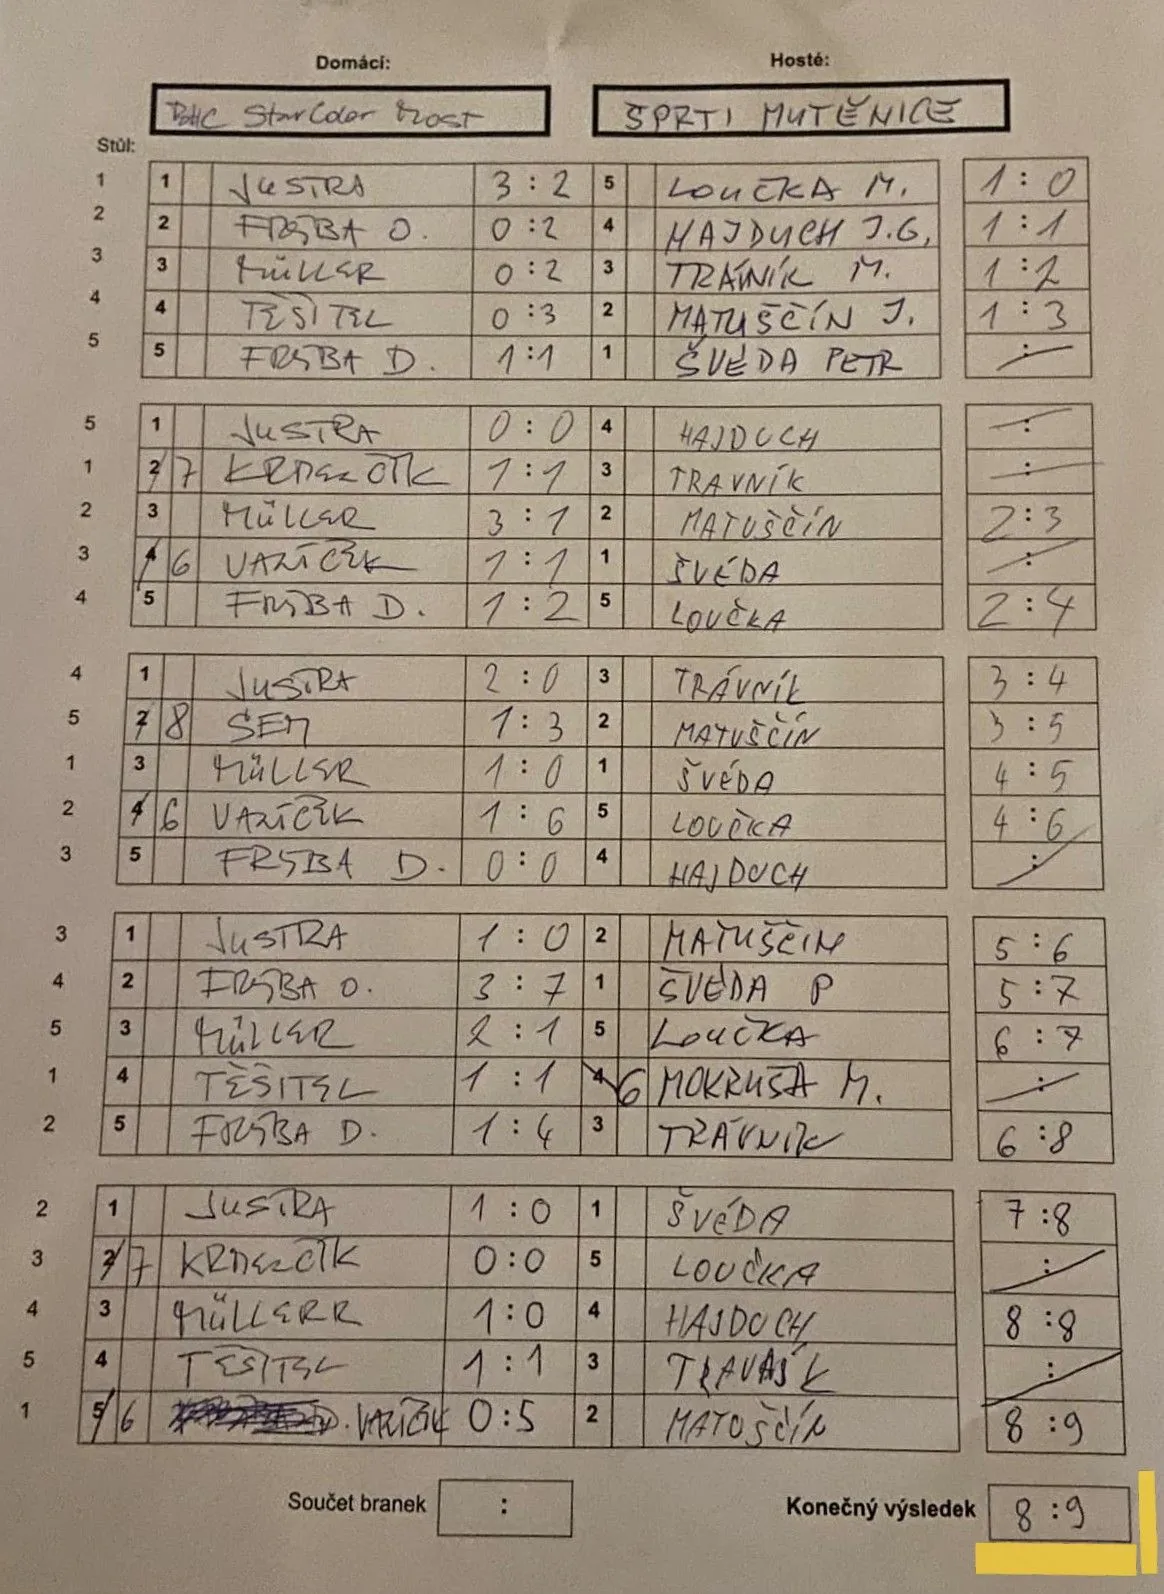 Domácí: Hosté:
BHC StarColor Most ŠPRTI MUTĚNICE
Stůl:
1 1 JUSTRA 3 : 2 5 LOUČKA M. 1 : 0
2 2 FRÝBA O. 0 : 2 4 HAJDUCH J.G. 1 : 1
3 3 MÜLLER 0 : 2 3 TRÁVNÍK M. 1 : 2
4 4 TĚŠITEL 0 : 3 2 MATUŠČÍN J. 1 : 3
5 5 FRÝBA D. 1 : 1 1 ŠVÉDA PETR :
5 1 JUSTRA 0 : 0 4 HAJDUCH :
1 2 7 1 : 1 3 TRAVNÍK :
2 3 MÜLLER 3 : 1 2 MATUŠČÍN 2 : 3
3 4 6 VAŘÍČEK 1 : 1 1 ŠVÉDA :
4 5 FRÝBA D. 1 : 2 5 LOUČKA 2 : 4
4 1 JUSTRA 2 : 0 3 TRÁVNÍK 3 : 4
5 2 8 SEM 1 : 3 2 MATUŠČÍN 3 : 5
1 3 MÜLLER 1 : 0 1 ŠVÉDA 4 : 5
2 4 6 VAŘÍČEK 1 : 6 5 LOUČKA 4 : 6
3 5 FRÝBA D. 0 : 0 4 HAJDUCH :
3 1 JUSTRA 1 : 0 2 MATUŠČÍN 5 : 6
4 2 FRÝBA O. 3 : 7 1 ŠVÉDA P 5 : 7
5 3 MÜLLER 2 : 1 5 LOUČKA 6 : 7
1 4 TĚŠITEL 1 : 1 4 6 MOKRUŠA M. :
2 5 FRÝBA D. 1 : 4 3 TRÁVNÍK 6 : 8
2 1 JUSTRA 1 : 0 1 ŠVÉDA 7 : 8
3 2 7 0 : 0 5 LOUČKA :
4 3 MÜLLERR 1 : 0 4 HAJDUCH 8 : 8
5 4 TĚŠITEL 1 : 1 3 :
1 5 6 VAŘÍČEK 0 : 5 2 MATUŠČÍN 8 : 9
Součet branek : Konečný výsledek 8 : 9